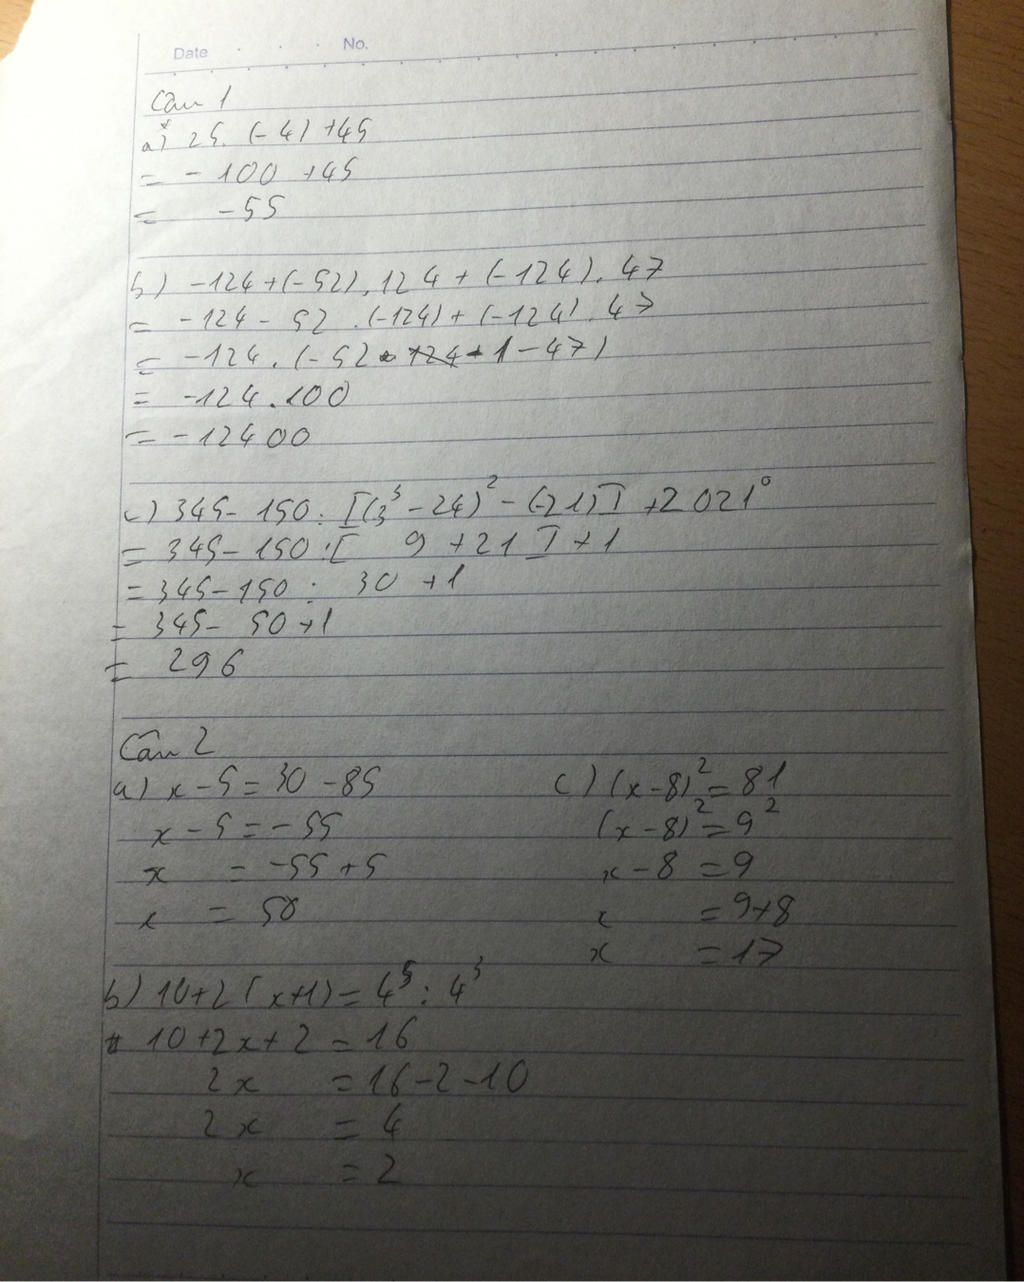 Date No.
Câu 1
a) 25. (-4) +45
= - 100 +45
= -55
b) -124+(-52).124 + (-124). 47
= -124 - 52 .(-124) + (-124). 47
= -124. (-52 1-47)
= -124.100
= -12400
c) 345- 150: [(3³ -24)² - (-21)] +2021⁰
= 345-150:[ 9 +21 ] +1
= 345-150 : 30 +1
= 345- 50 +1
= 296
Câu 2
a) x-5=30-85
x-5=-55
x = -55+5
x = 50
c) (x-8)²=81
(x-8)²=9²
x-8 =9
x =9+8
x =17
b) 10+2(x+1)=4⁵:4³
10+2x+2 =16
2x =16-2-10
2x = 4
x =2